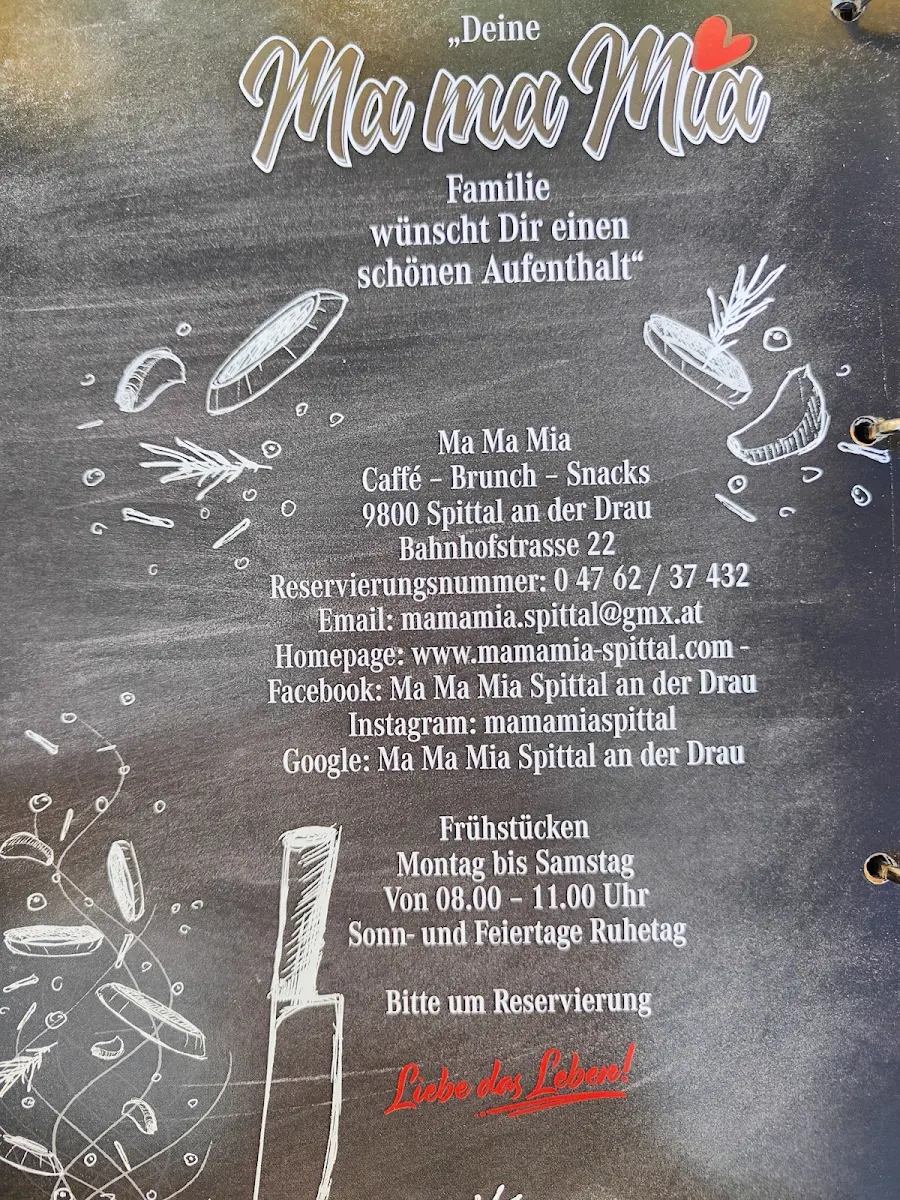 „Deine
Ma ma Mia
Familie
wünscht Dir einen
schönen Aufenthalt“
Ma Ma Mia
Caffé – Brunch – Snacks
9800 Spittal an der Drau
Bahnhofstrasse 22
Reservierungsnummer: 0 47 62 / 37 432
Email: mamamia.spittal@gmx.at
Homepage: www.mamamia-spittal.com -
Facebook: Ma Ma Mia Spittal an der Drau
Instagram: mamamiaspittal
Google: Ma Ma Mia Spittal an der Drau
Frühstücken
Montag bis Samstag
Von 08.00 – 11.00 Uhr
Sonn- und Feiertage Ruhetag
Bitte um Reservierung
Liebe das Leben!